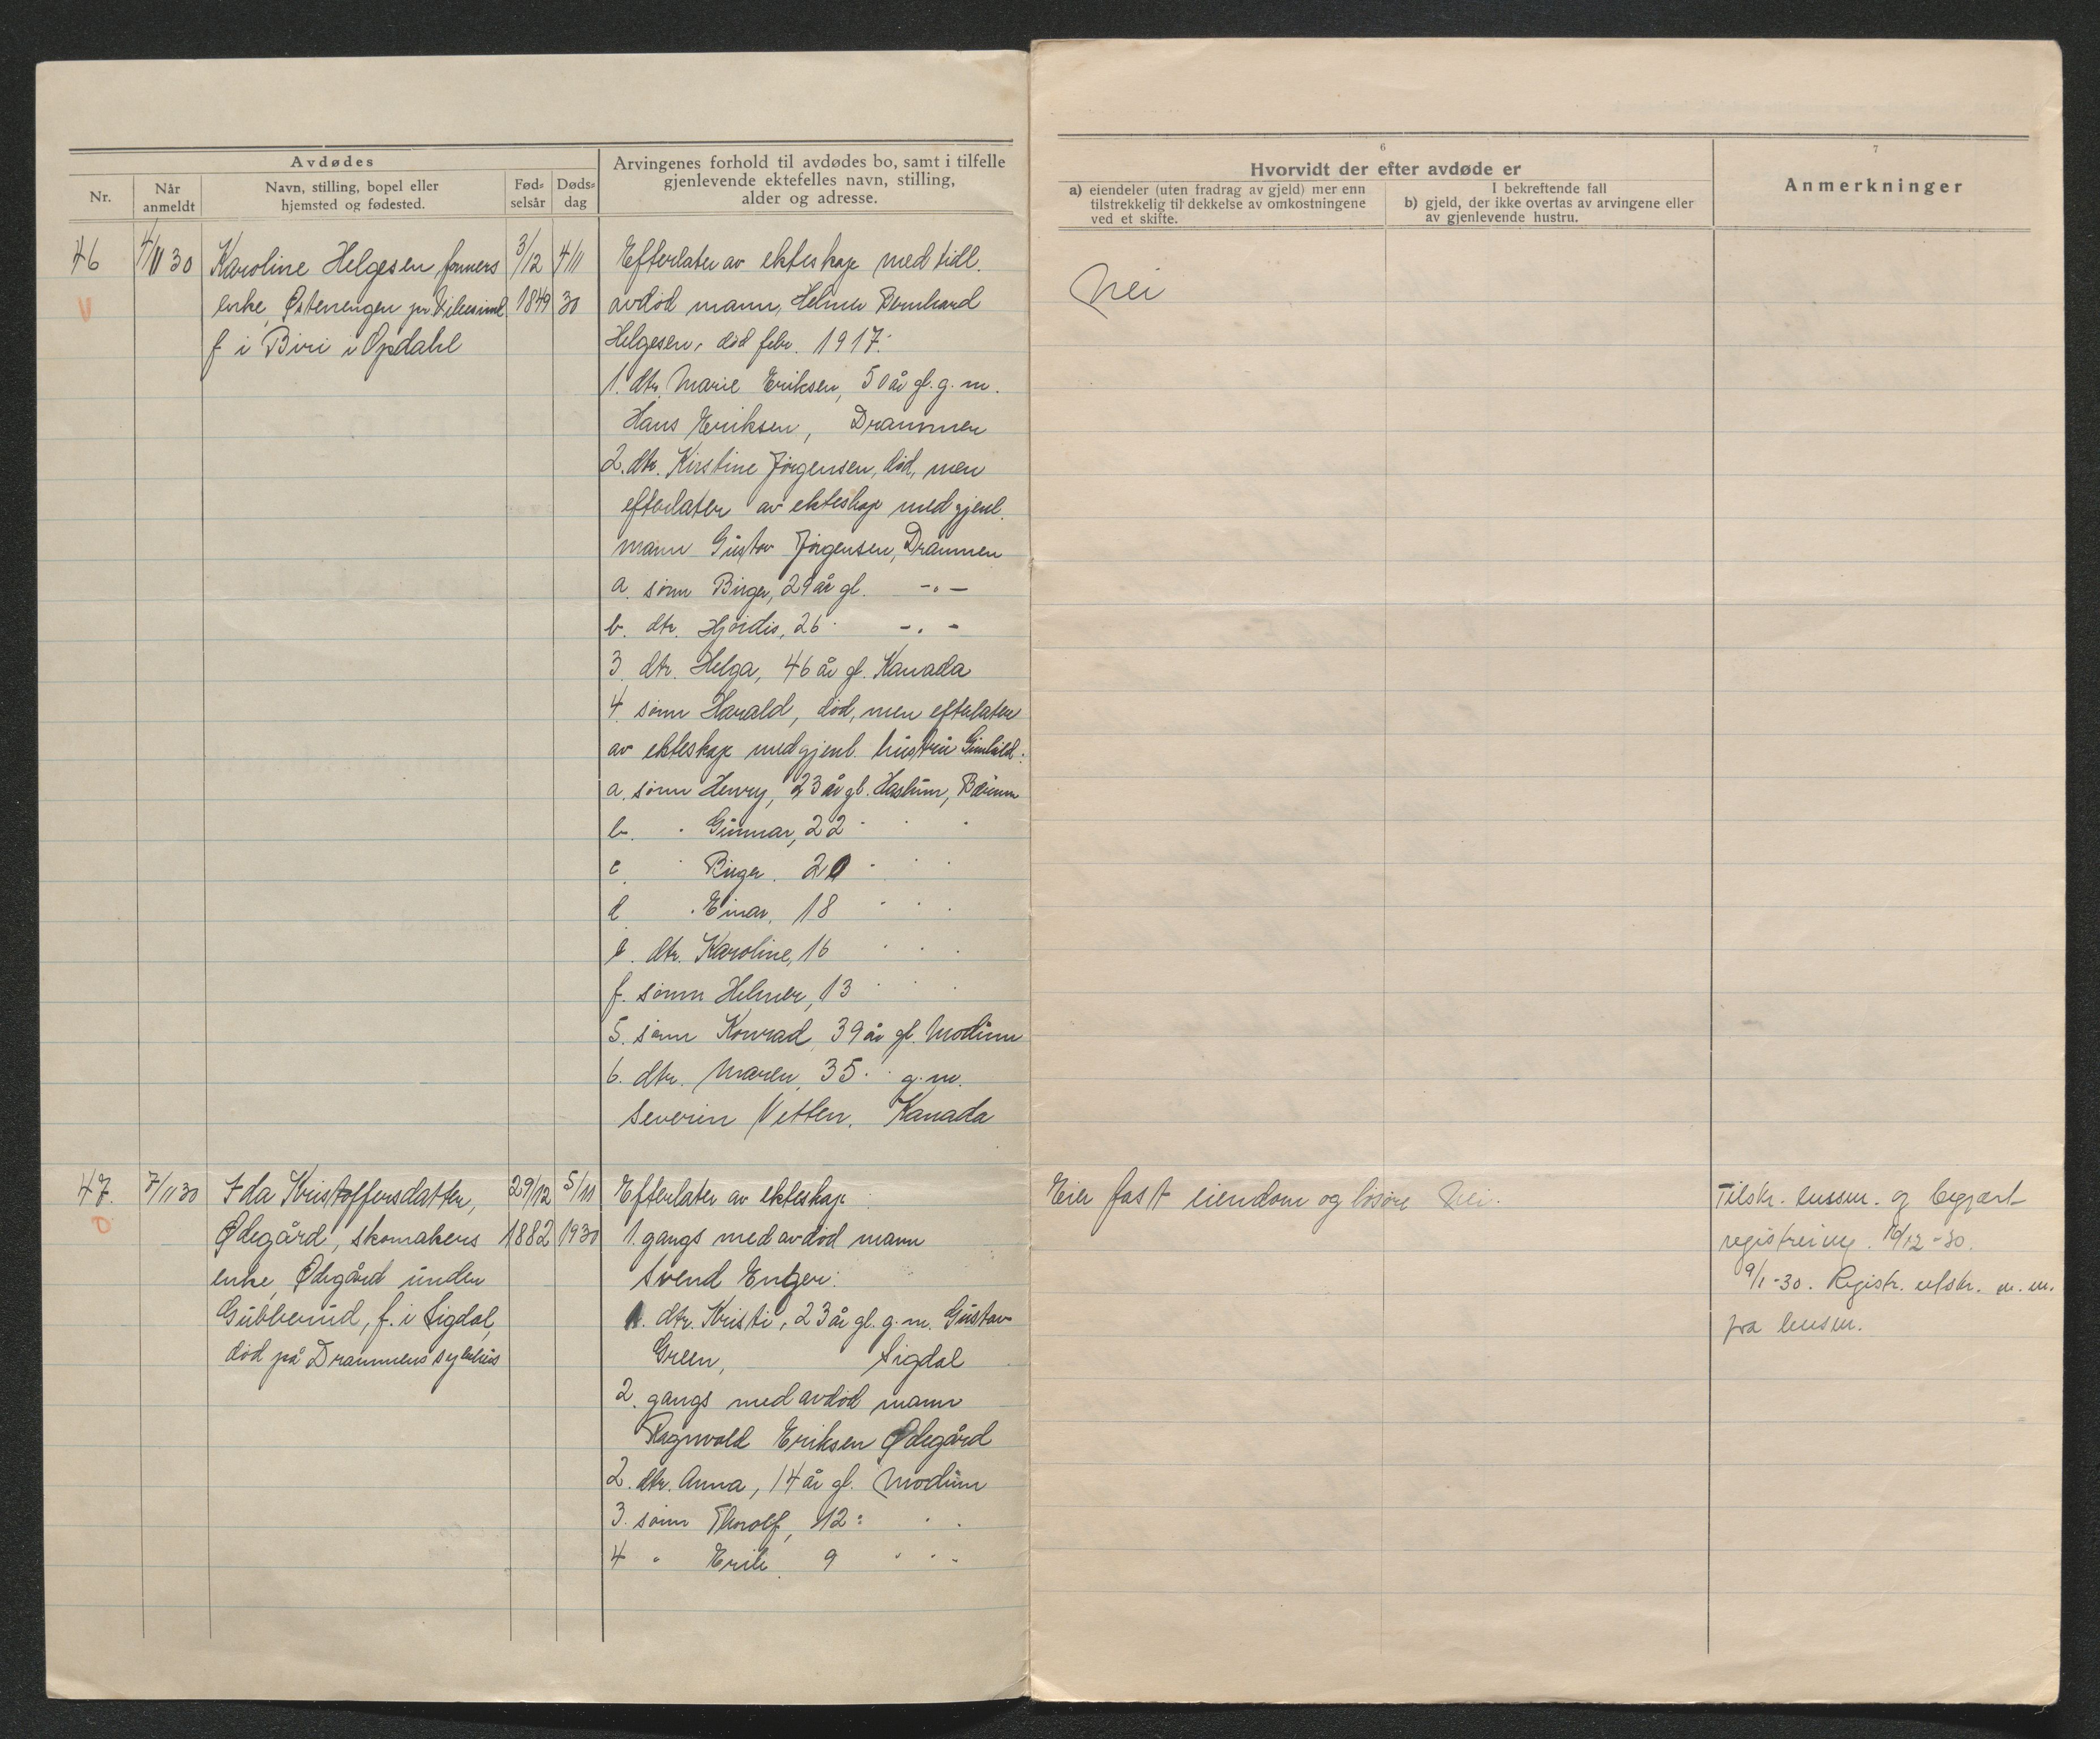 Avdødes
Nr.
Når
anmeldt
Navn, stilling, bopel eller
hjemsted og fødested.
Fød-
selsår
Døds-
dag
Arvingenes forhold til avdødes bo, samt i tilfelle
gjenlevende ektefelles navn, stilling,
alder og adresse.
46
4/11 30
Karoline Helgesen formers
enke, Østerengen pr Vikersund
f i Biri i Opdahl
3/12
1849
4/11
30
Efterlater av ekteskap med tidl.
avdød mann, Helmer Bernhard
Helgesen, død febr. 1917:
1. dtr. Marie Eriksen, 50 år gl. g. m.
Hans Eriksen, Drammen
2. dtr. Kirstine Jørgensen, død, men
efterlater av ekteskap med gjenl.
mann Gustav Jørgensen, Drammen
a. sønn Birger, 29 år gl. -"-
b. dtr. Hjørdis, 26 " -"-
3. dtr. Helga, 46 år gl. Kanada
4. sønn Harald, død, men efterlater
av ekteskap med gjenl. hustru Gunhild:
a. sønn Henry, 23 år gl. Haslum, Bærum
b. " Gunnar, 22 " " "
c. " Birger. 20 " " "
d. " Einar, 18 " " "
e. dtr. Karoline, 16 " " "
f. sønn Helmer, 13 " " "
5. sønn Konrad, 39 år gl. Modum
6. dtr. Maren, 35 " " g. m.
Severin Vetten. Kanada
47.
7/11 30
Ida Kristoffersdatter,
Ødegård, skomakers
enke, Ødegård under
Gubberud, f. i Sigdal,
død på Drammens sykehus
29/12
1882
5/11
1930
Efterlater av ekteskap:
1. gangs med avdød mann
Svend Enger:
1. dtr. Kristi, 23 år gl. g. m. Gustav
Green, Sigdal
2. gangs med avdød mann
Ragnvald Eriksen Ødegård
2. dtr. Anna, 14 år gl. Modum
3. sønn Thorolf, 12 " " "
4 " Erik, 9 " " "
6
Hvorvidt der efter avdøde er
a) eiendeler (uten fradrag av gjeld) mer enn
tilstrekkelig til dekkelse av omkostningene
ved et skifte.
I bekreftende fall
b) gjeld, der ikke overtas av arvingene eller
av gjenlevende hustru.
7
Anmerkninger
Nei
Eier fast eiendom og løsøre Nei.
Tilskr. lensm. og begjært
registrering. 16/12-30.
9/1-30. Registr. utskr. m. m.
fra lensm.